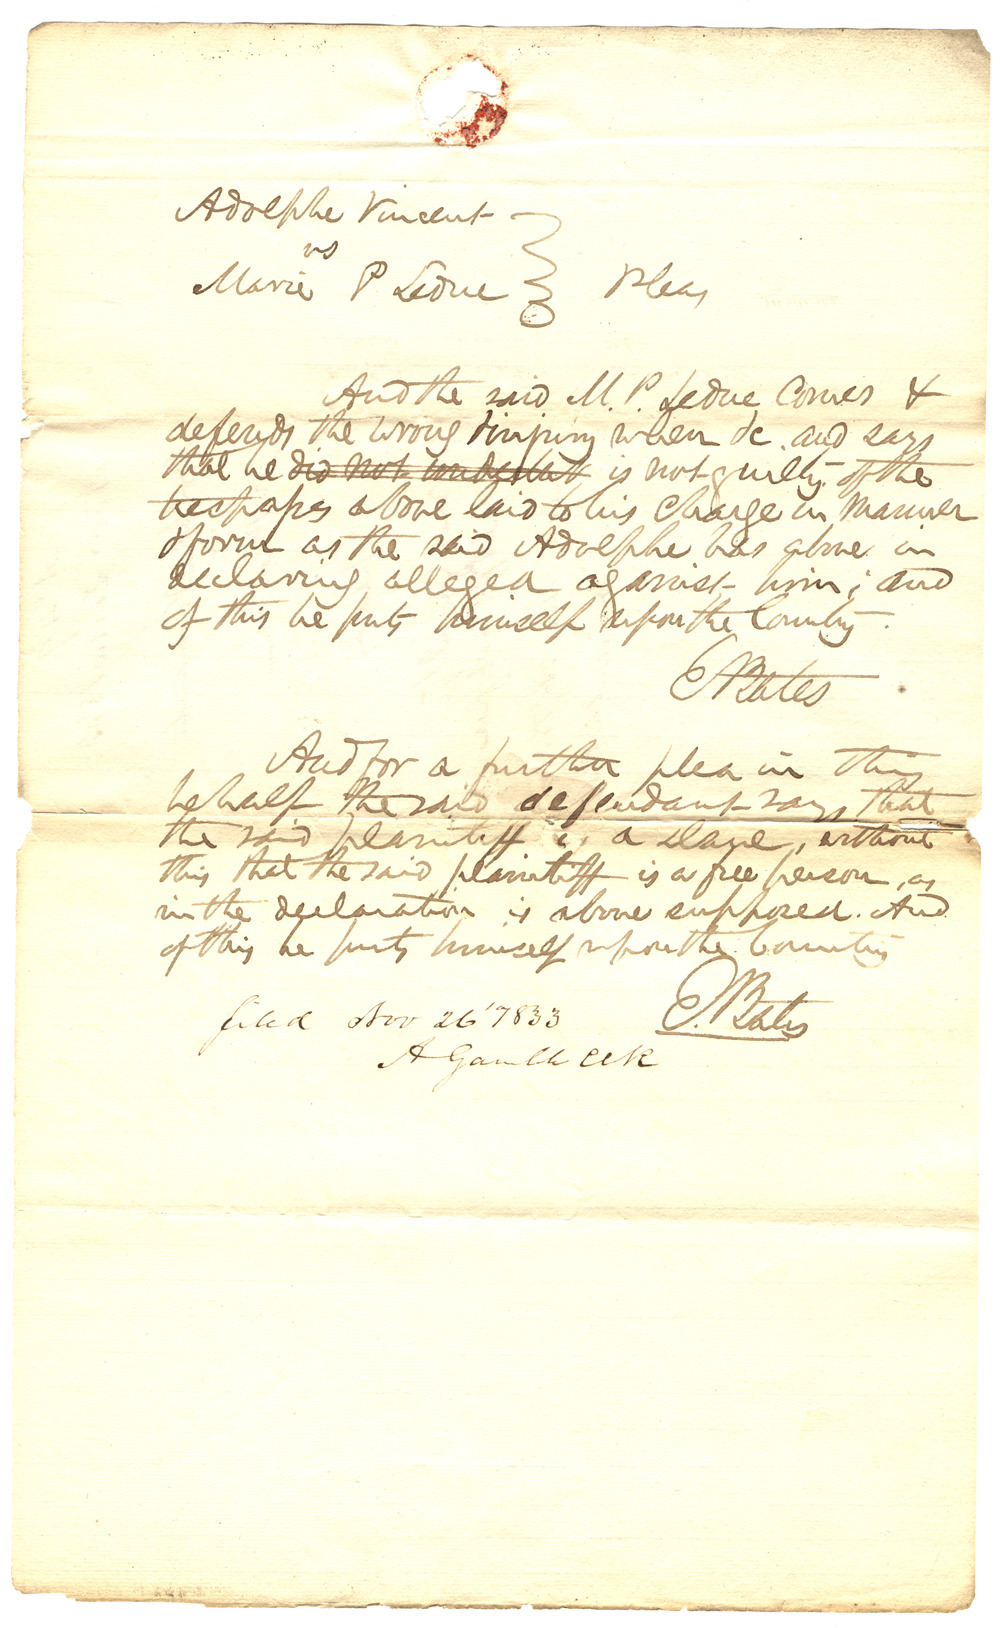 Adolphe Vincent
vs
Marie P Leduc Pleas
And the said M. P. Leduc Comes &
defends the wrong & injury when &c. and says
that he did not undertake is not guilty of the
trespasses above laid to his charge in manner
& form as the said Adolphe has above in
declaring alleged against him; and
of this he puts himself upon the Country.
E Bates
And for a further plea in this
behalf the said defendant says that
the said plaintiff is a slave, without
this that the said plaintiff is a free person, as
in the declaration is above supposed. And
of this he puts himself upon the Country
E. Bates
filed Nov 26 1833
A Gamble Clk